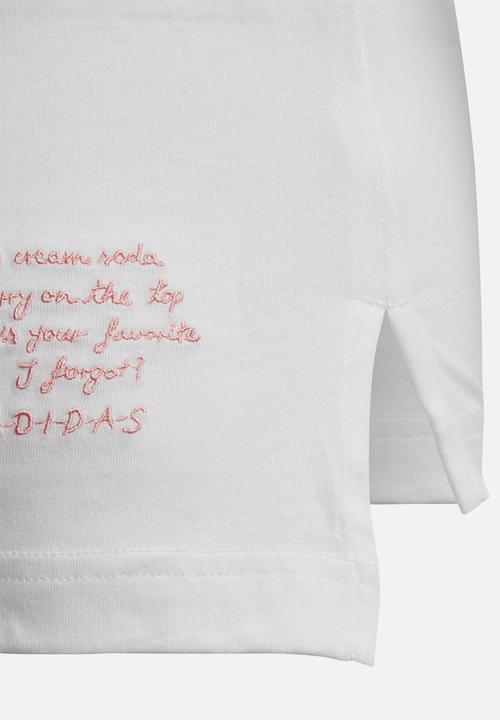 cream soda
rry on the top
is your favorite
I forgot?
-D-I-D-A-S